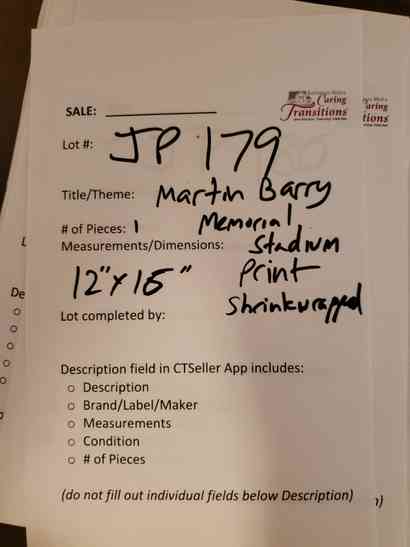 Caring
Transitions
SALE:
Lot #: JP 179
Title/Theme: Martin Barry
# of Pieces: 1 Memorial
Measurements/Dimensions: Stadium
12" x 16" Print
Shrinkwrapped
Lot completed by:
Description field in CTSeller App includes:
o Description
o Brand/Label/Maker
o Measurements
o Condition
o # of Pieces
(do not fill out individual fields below Description)